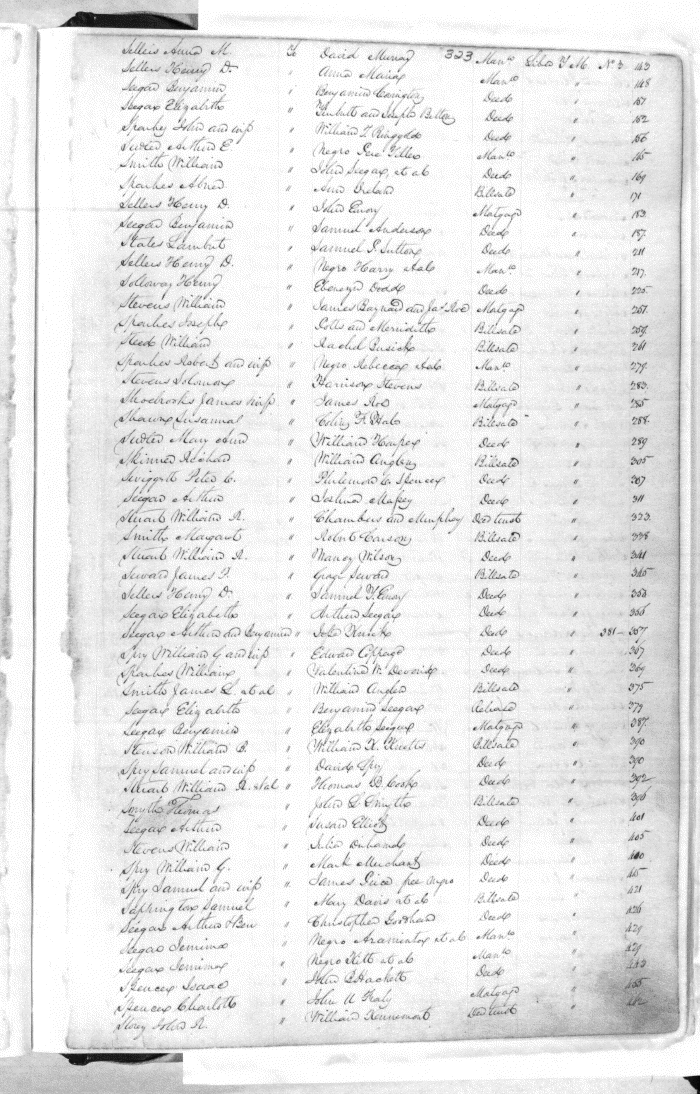 Sellers Anna M. To David Murray 323 Manro Liber T M. No 3 143
Sellers Henry D. " Anna Murray Manro " 148
Seegar Benjamin " Benjamin Covington Deed " 151
Seegar Elizabeth " and Joseph Betton Deed " 152
Sparkes John and wife " William T. Ringgold Deed " 156
Sudler Arthur E " Negro Manro " 165
Smith William " John Seegar, et al Deed " 169
Sparkes Abner " Ann Ireland Billsale " 171
Sellers Henry D. " John Emory Mortgage " 183
Seegar Benjamin " Samuel Anderson Deed " 187
States Lambert " Samuel P. Sutton Deed " 211
Sellers Henry D. " Negro Harry &als Manro " 217
Solloway Henry " Ebenezer Dodd Deed " 225
Stevens William " James Baynard and Jas Roe Mortgage " 251
Sparkes Joseph " Potts and Merideth Billsale " 259
Steed William " Rachel Busick Billsale " 261
Sparkes Robert and wife " Negro Rebecca &als Manro " 279
Stevens Solomon " Harrison Stevens Billsale " 283
Shoebrooks James &wife " James Roe Mortgage " 285
Shawn Susannah " F. Hall Billsale " 288
Sudler Mary Ann " William Harper Deed " 289
Skinner Richard " William Anglen Billsale " 305
Swiggett Peter C. " Philemon C. Spencer Deed " 307
Seegar Arthur " Joshua Massey Deed " 311
Stuart William R. " Chambers and Murphey Deed trust " 333
Smith Margaret " Robert Carson Billsale " 338
Stuart William R. " Nancy Wilson Deed " 341
Seward James F. " Seward Billsale " 345
Sellers Henry D. " Samuel T. Emory Deed " 353
Seegar Elizabeth " Arthur Seegar Deed " 356
Seegar Arthur and Benjamin " John Deed " 381 - 357
Spry William G and wife " Edward Coppage Deed " 367
Sparkes William " Valentine W. Deed " 369
Smith James S. et al " William Anglen Billsale " 375
Seegar Elizabeth " Benjamin Seegar Release " 379
Seegar Benjamin " Elizabeth Seegar Mortgage " 387
Stenson William B. " William K. Billsale " 390
Spry Samuel and wife " David Spry Deed " 390
Stuart William R. &al " Thomas B. Cook Deed " 392
Smyth Thomas " John S. Smyth Billsale " 396
Seegar Arthur " Susan Elliott Deed " 401
Stevens William " Julia Deed " 405
Spry William G. " Mark Merchant Deed " 410
Spry Samuel and wife " James free negro Deed " 415
Sappington Samuel " Mary Davis et al Billsale " 421
Seegar Arthur & Ben " Christopher Goodhand Deed " 426
Seegar Jemima " Negro Araminta et al Manro " 429
Seegar Jemima " Negro Kitt et al Manro " 429
Spencer Isaac " John C Hackett Deed " 433
Spencer Charlotte " John W Mortgage " 455
Story John R. " William Kennement Deed trust " 462